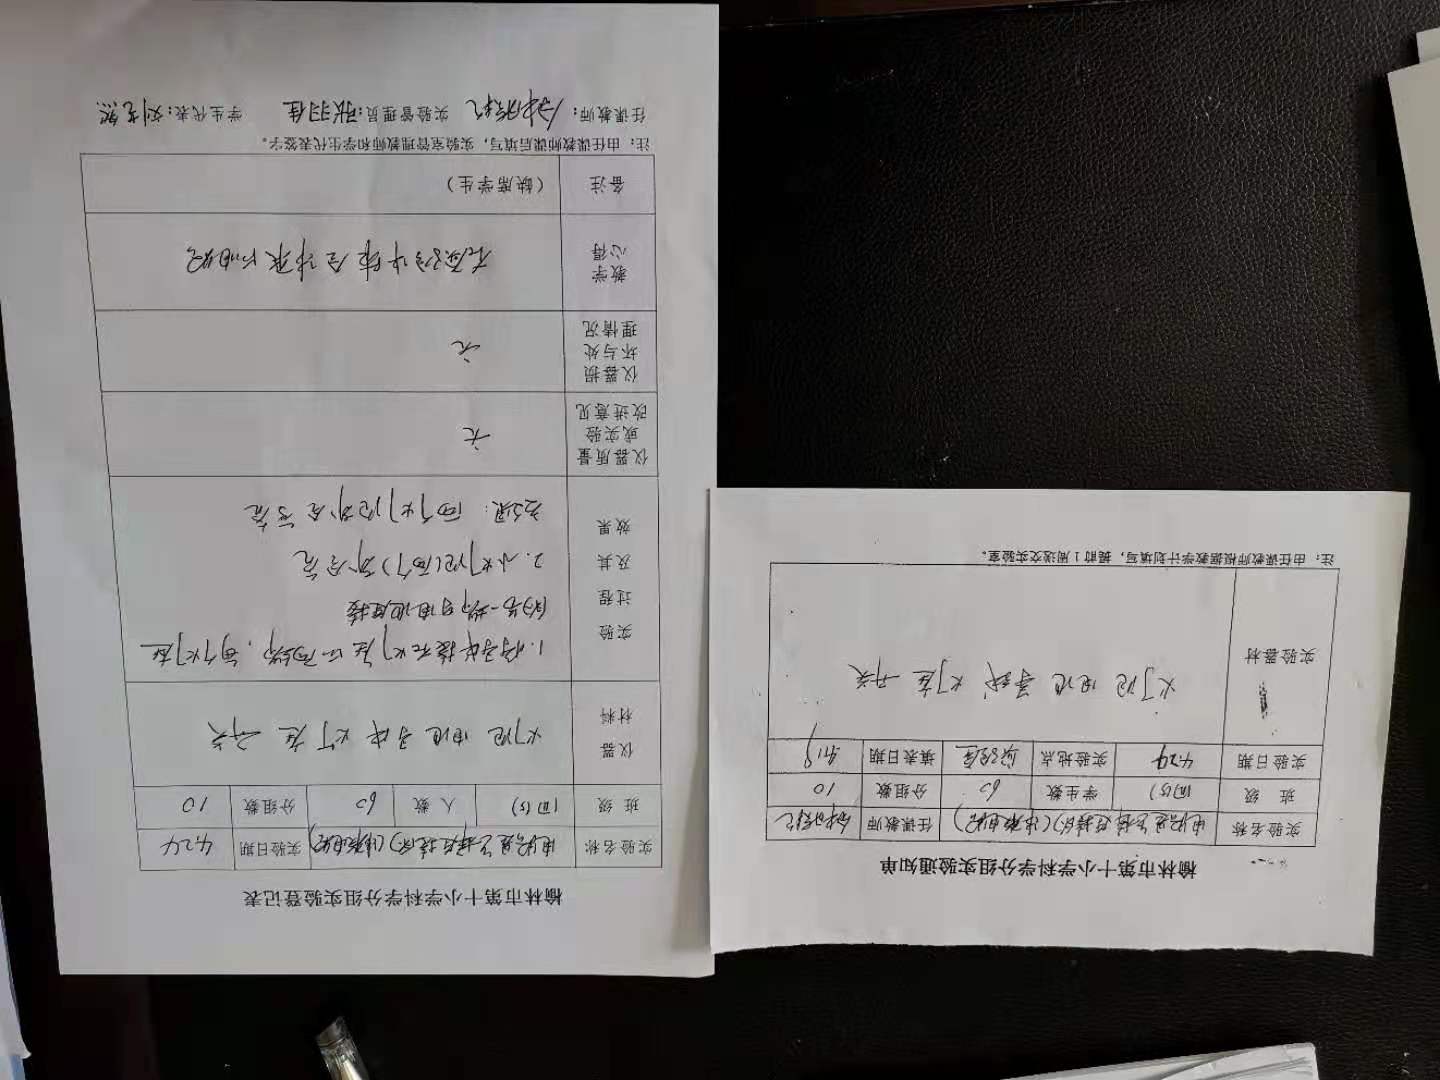 榆林市第十小学科学分组实验登记表
实验名称 电路是怎样连接的(串联电路) 实验日期 4.24
班 级 四(5) 人 数 60 分组数 10
仪器材料 灯泡 电池 导线 灯座 开关
实验过程及其效果
1.将导线接在灯座的两端,每个灯座
的另一端与电池连接
2.小灯泡(两个)都会亮
结果:两个灯泡都会亮
仪器质量或实验改进意见 无
仪器损坏与处理情况 无
教学心得
备注 (缺席学生)
注:由任课教师课后填写,实验室管理教师和学生代表签字。
任课教师: 实验管理员:张羽佳 学生代表:
榆林市第十小学科学分组实验通知单
实验名称 电路是怎样连接的(串联电路) 任课教师
班 级 四(5) 学生数 60 分组数 10
实验日期 4.24 实验地点 实验室 填表日期
实验器材 灯泡 电池 导线 灯座 开关
注:由任课教师根据教学计划填写,提前1周送交实验室。